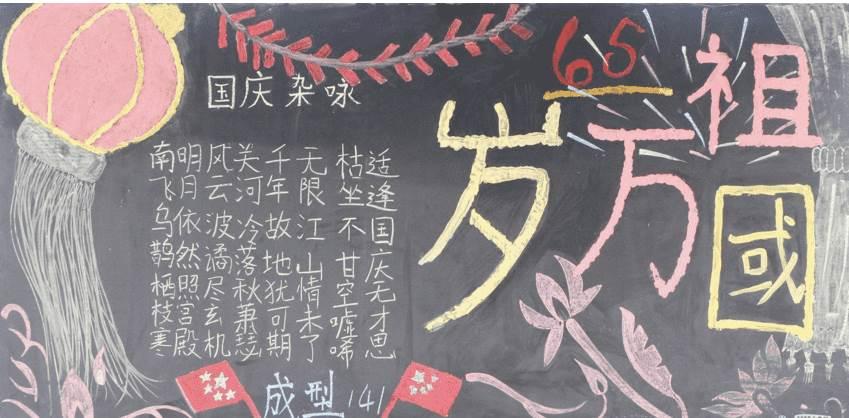 祖國万岁
65
国庆杂咏
适逢国庆无才思
枯坐不甘空嘘唏
无限江山情未了
千年故地犹可期
关河冷落秋萧瑟
风云波谲尽玄机
明月依然照宫殿
南飞乌鹊栖枝寒
成型141